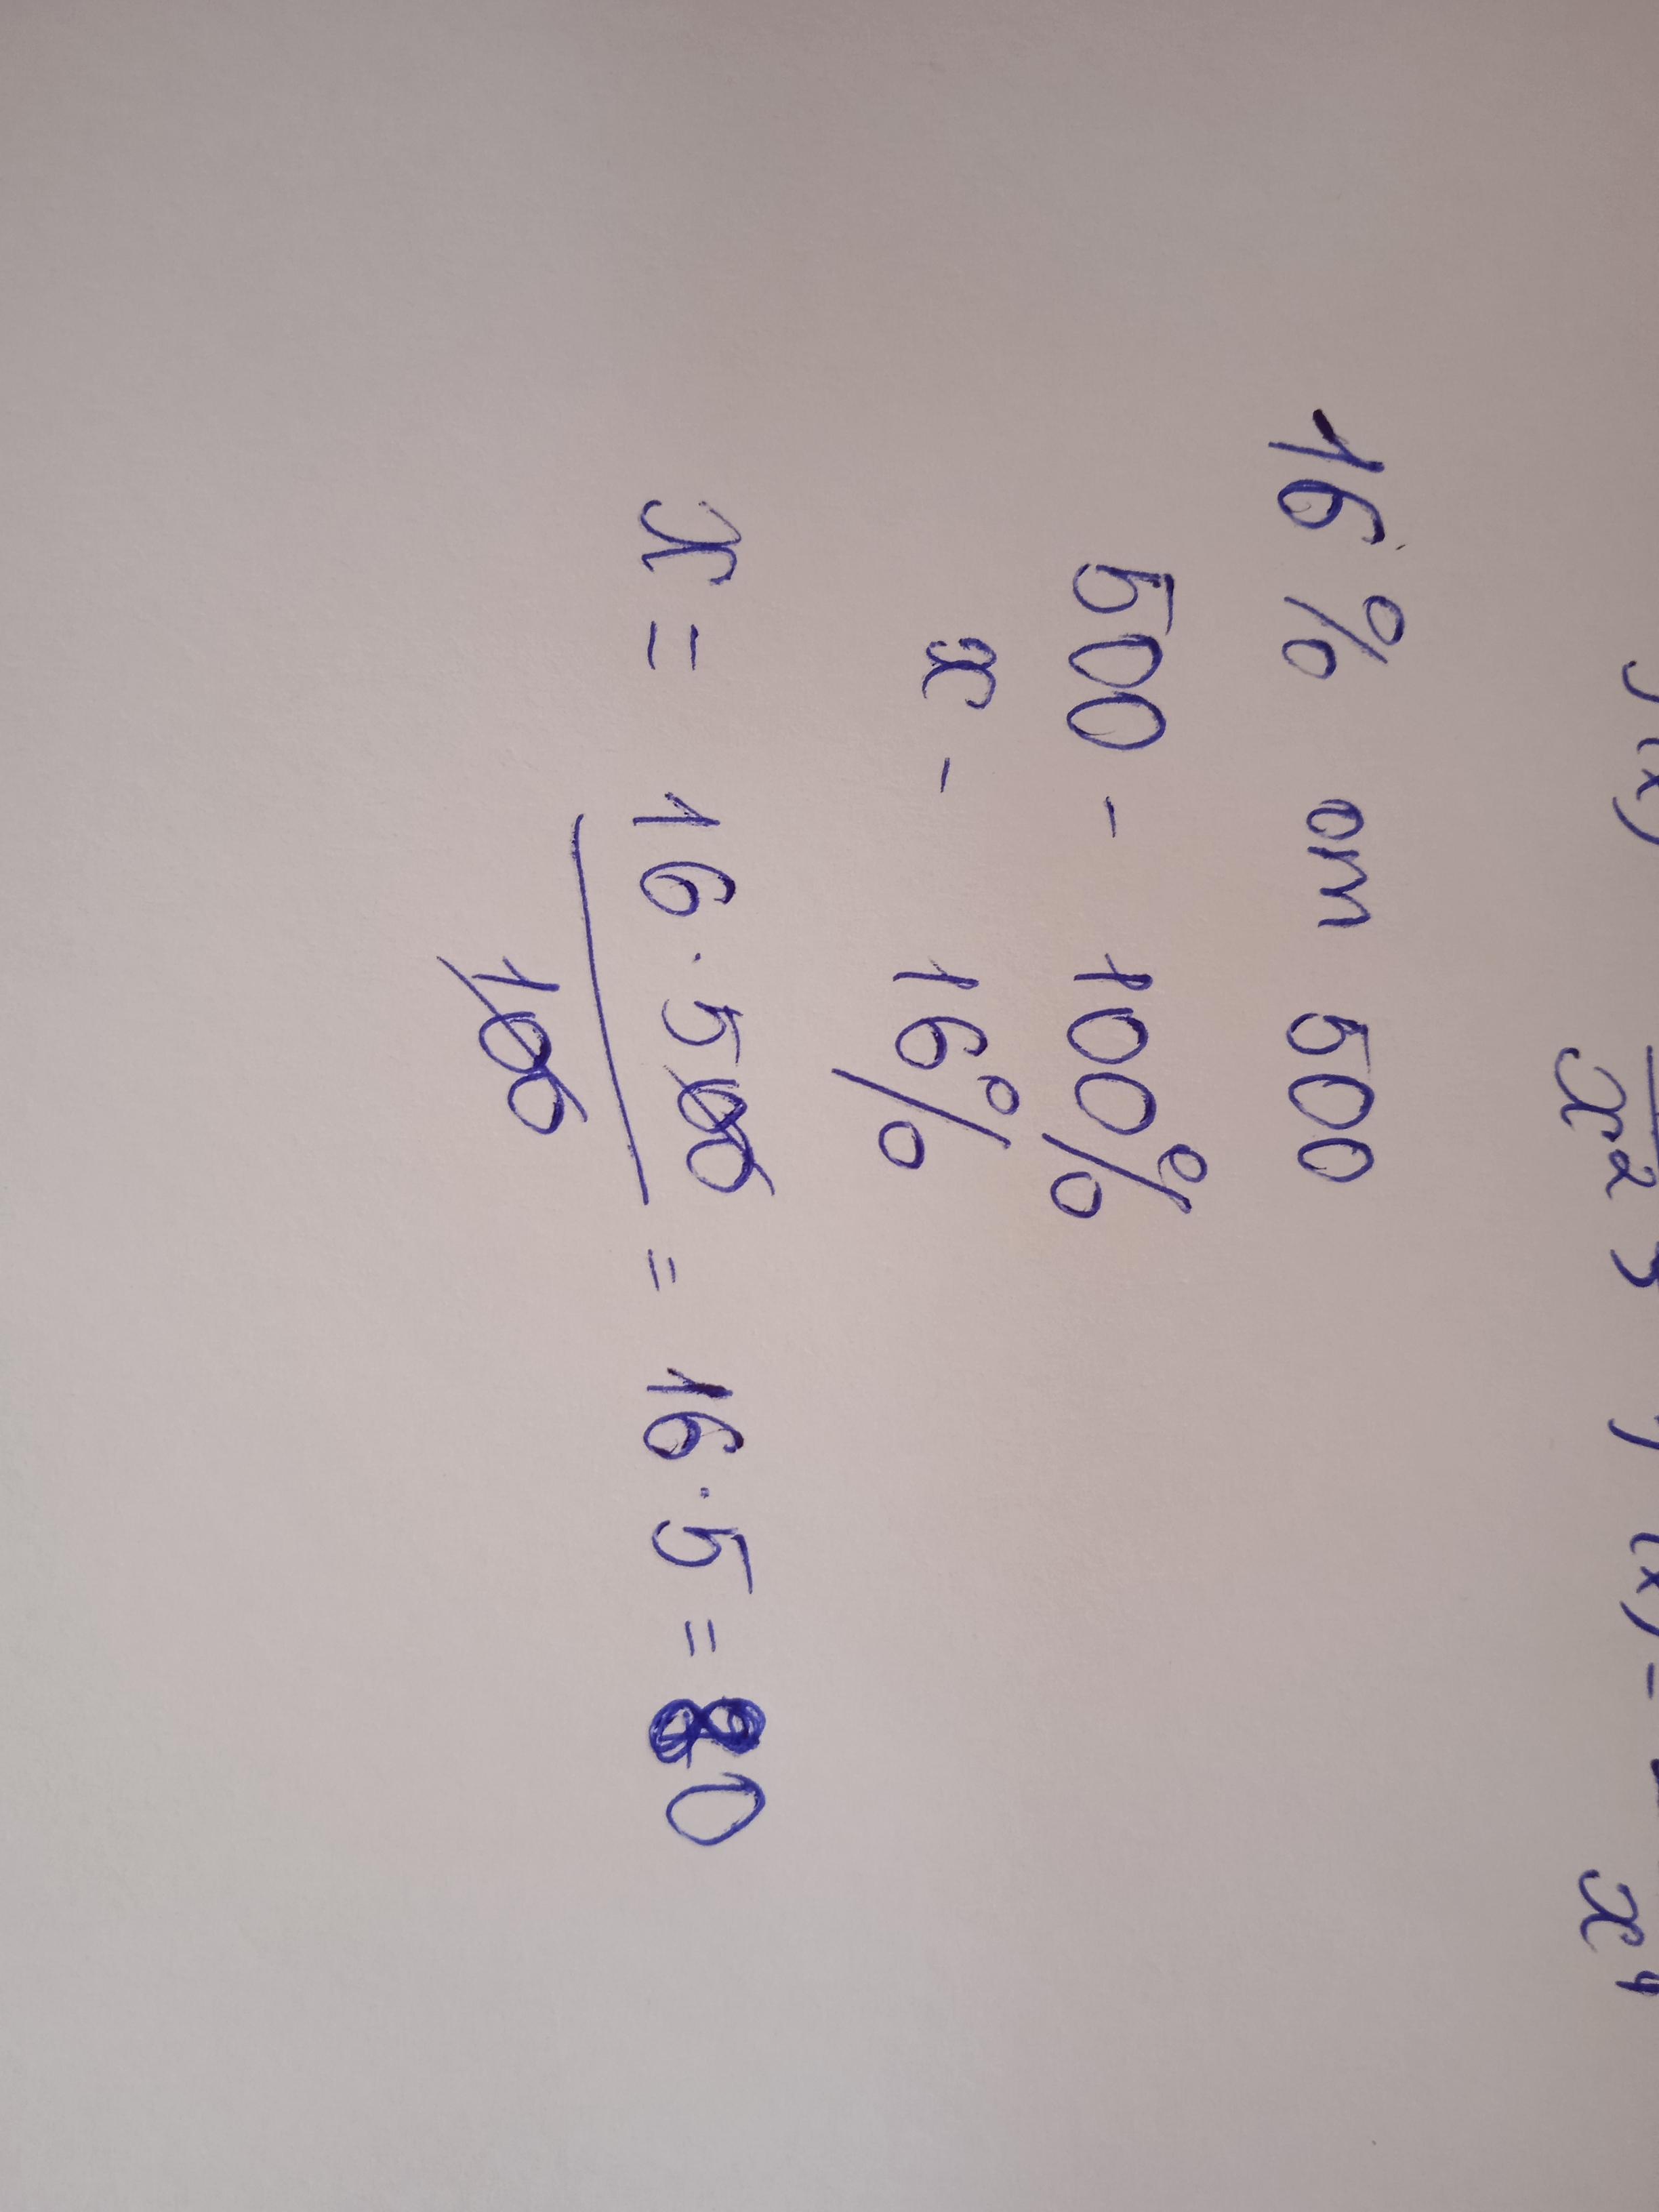 16% от 500
500 - 100%
x - 16%
x = 16 · 500 / 100 = 16 · 5 = 80